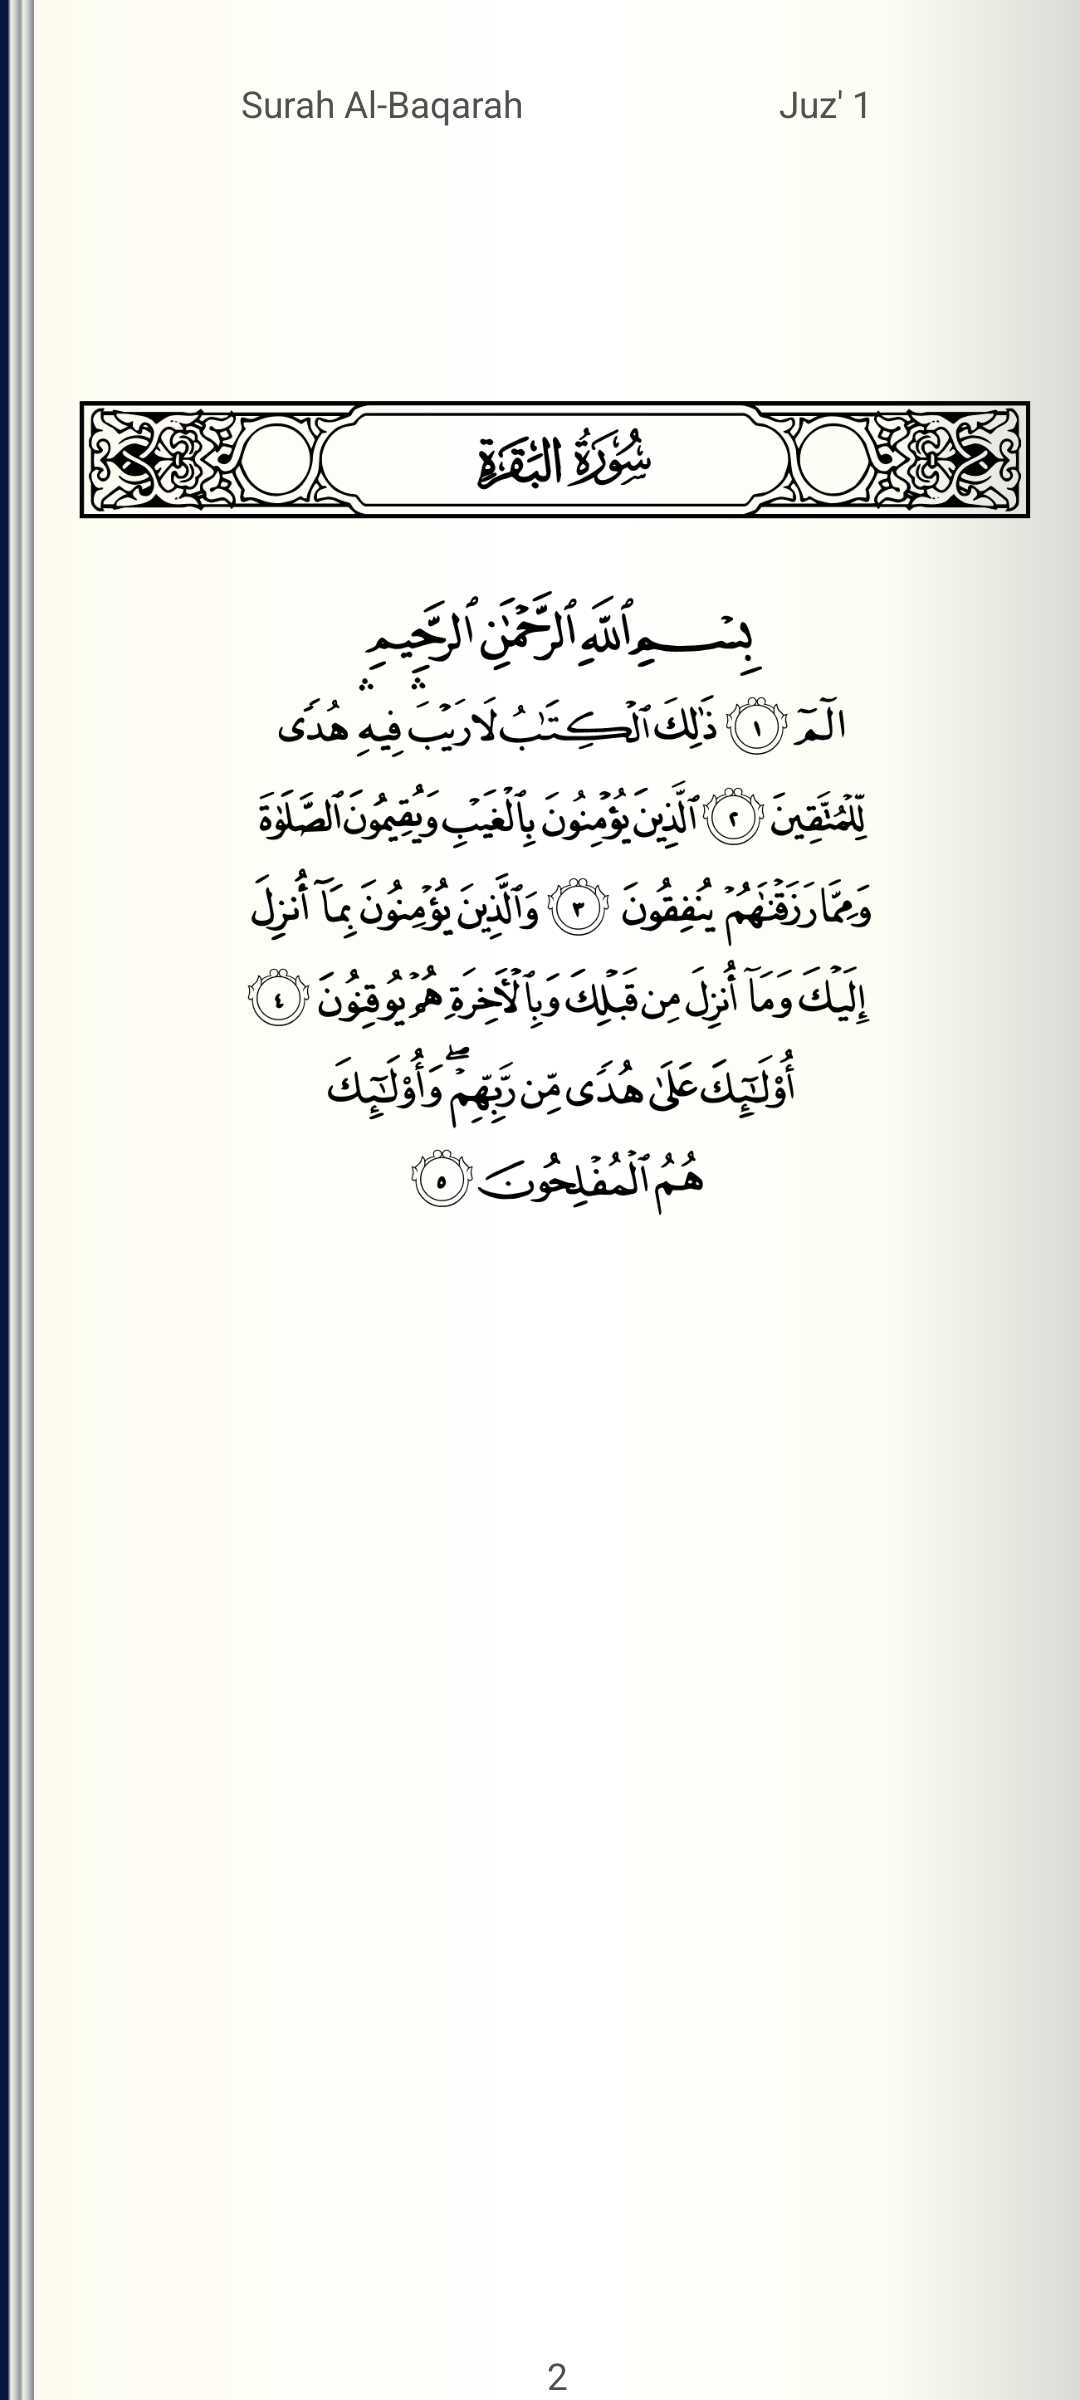 Surah Al-Baqarah Juz' 1
سُورَةُ البَقَرَةِ
بِسۡمِ ٱللَّهِ ٱلرَّحۡمَٰنِ ٱلرَّحِيمِ
الٓمٓ ١ ذَٰلِكَ ٱلۡكِتَٰبُ لَا رَيۡبَۛ فِيهِۛ هُدٗى
لِّلۡمُتَّقِينَ ٢ ٱلَّذِينَ يُؤۡمِنُونَ بِٱلۡغَيۡبِ وَيُقِيمُونَ ٱلصَّلَوٰةَ
وَمِمَّا رَزَقۡنَٰهُمۡ يُنفِقُونَ ٣ وَٱلَّذِينَ يُؤۡمِنُونَ بِمَآ أُنزِلَ
إِلَيۡكَ وَمَآ أُنزِلَ مِن قَبۡلِكَ وَبِٱلۡأٓخِرَةِ هُمۡ يُوقِنُونَ ٤
أُوْلَٰٓئِكَ عَلَىٰ هُدٗى مِّن رَّبِّهِمۡۖ وَأُوْلَٰٓئِكَ
هُمُ ٱلۡمُفۡلِحُونَ ٥
2